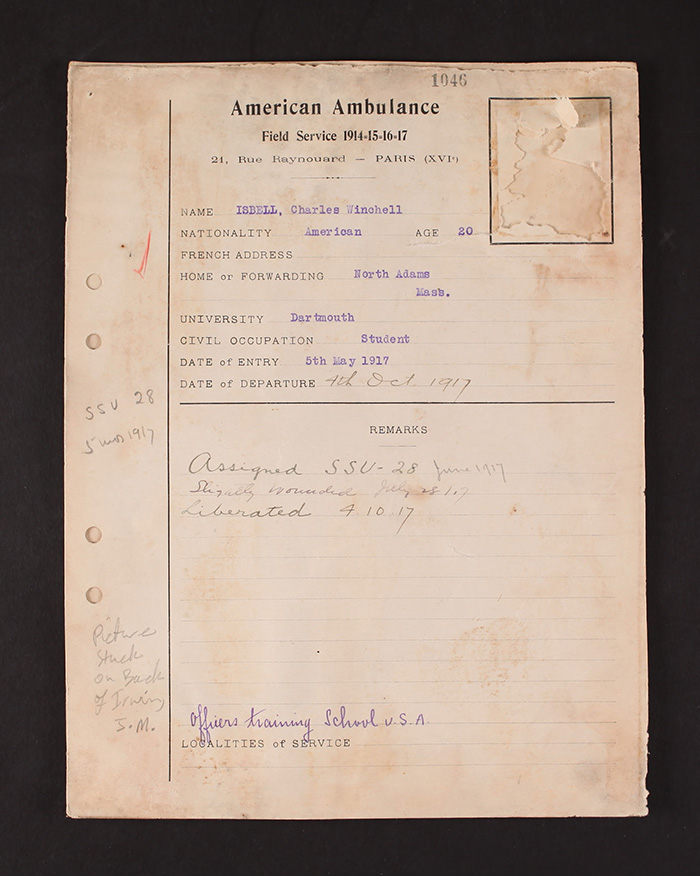 1046
American Ambulance
Field Service 1914-15-16-17
21, Rue Raynouard — PARIS (XVIe)
NAME ISBELL, Charles Winchell
NATIONALITY American AGE 20
FRENCH ADDRESS
HOME or FORWARDING North Adams
Mass.
UNIVERSITY Dartmouth
CIVIL OCCUPATION Student
DATE of ENTRY 5th May 1917
DATE of DEPARTURE 4th Oct. 1917
SSU 28
5 mos 1917
REMARKS
Assigned SSU-28 June 1917
Slightly wounded July 28/17
Liberated 4 10 17
Picture
Stuck
on Back
of Irwin,
J.M.
Officers training School U.S.A.
LOCALITIES of SERVICE